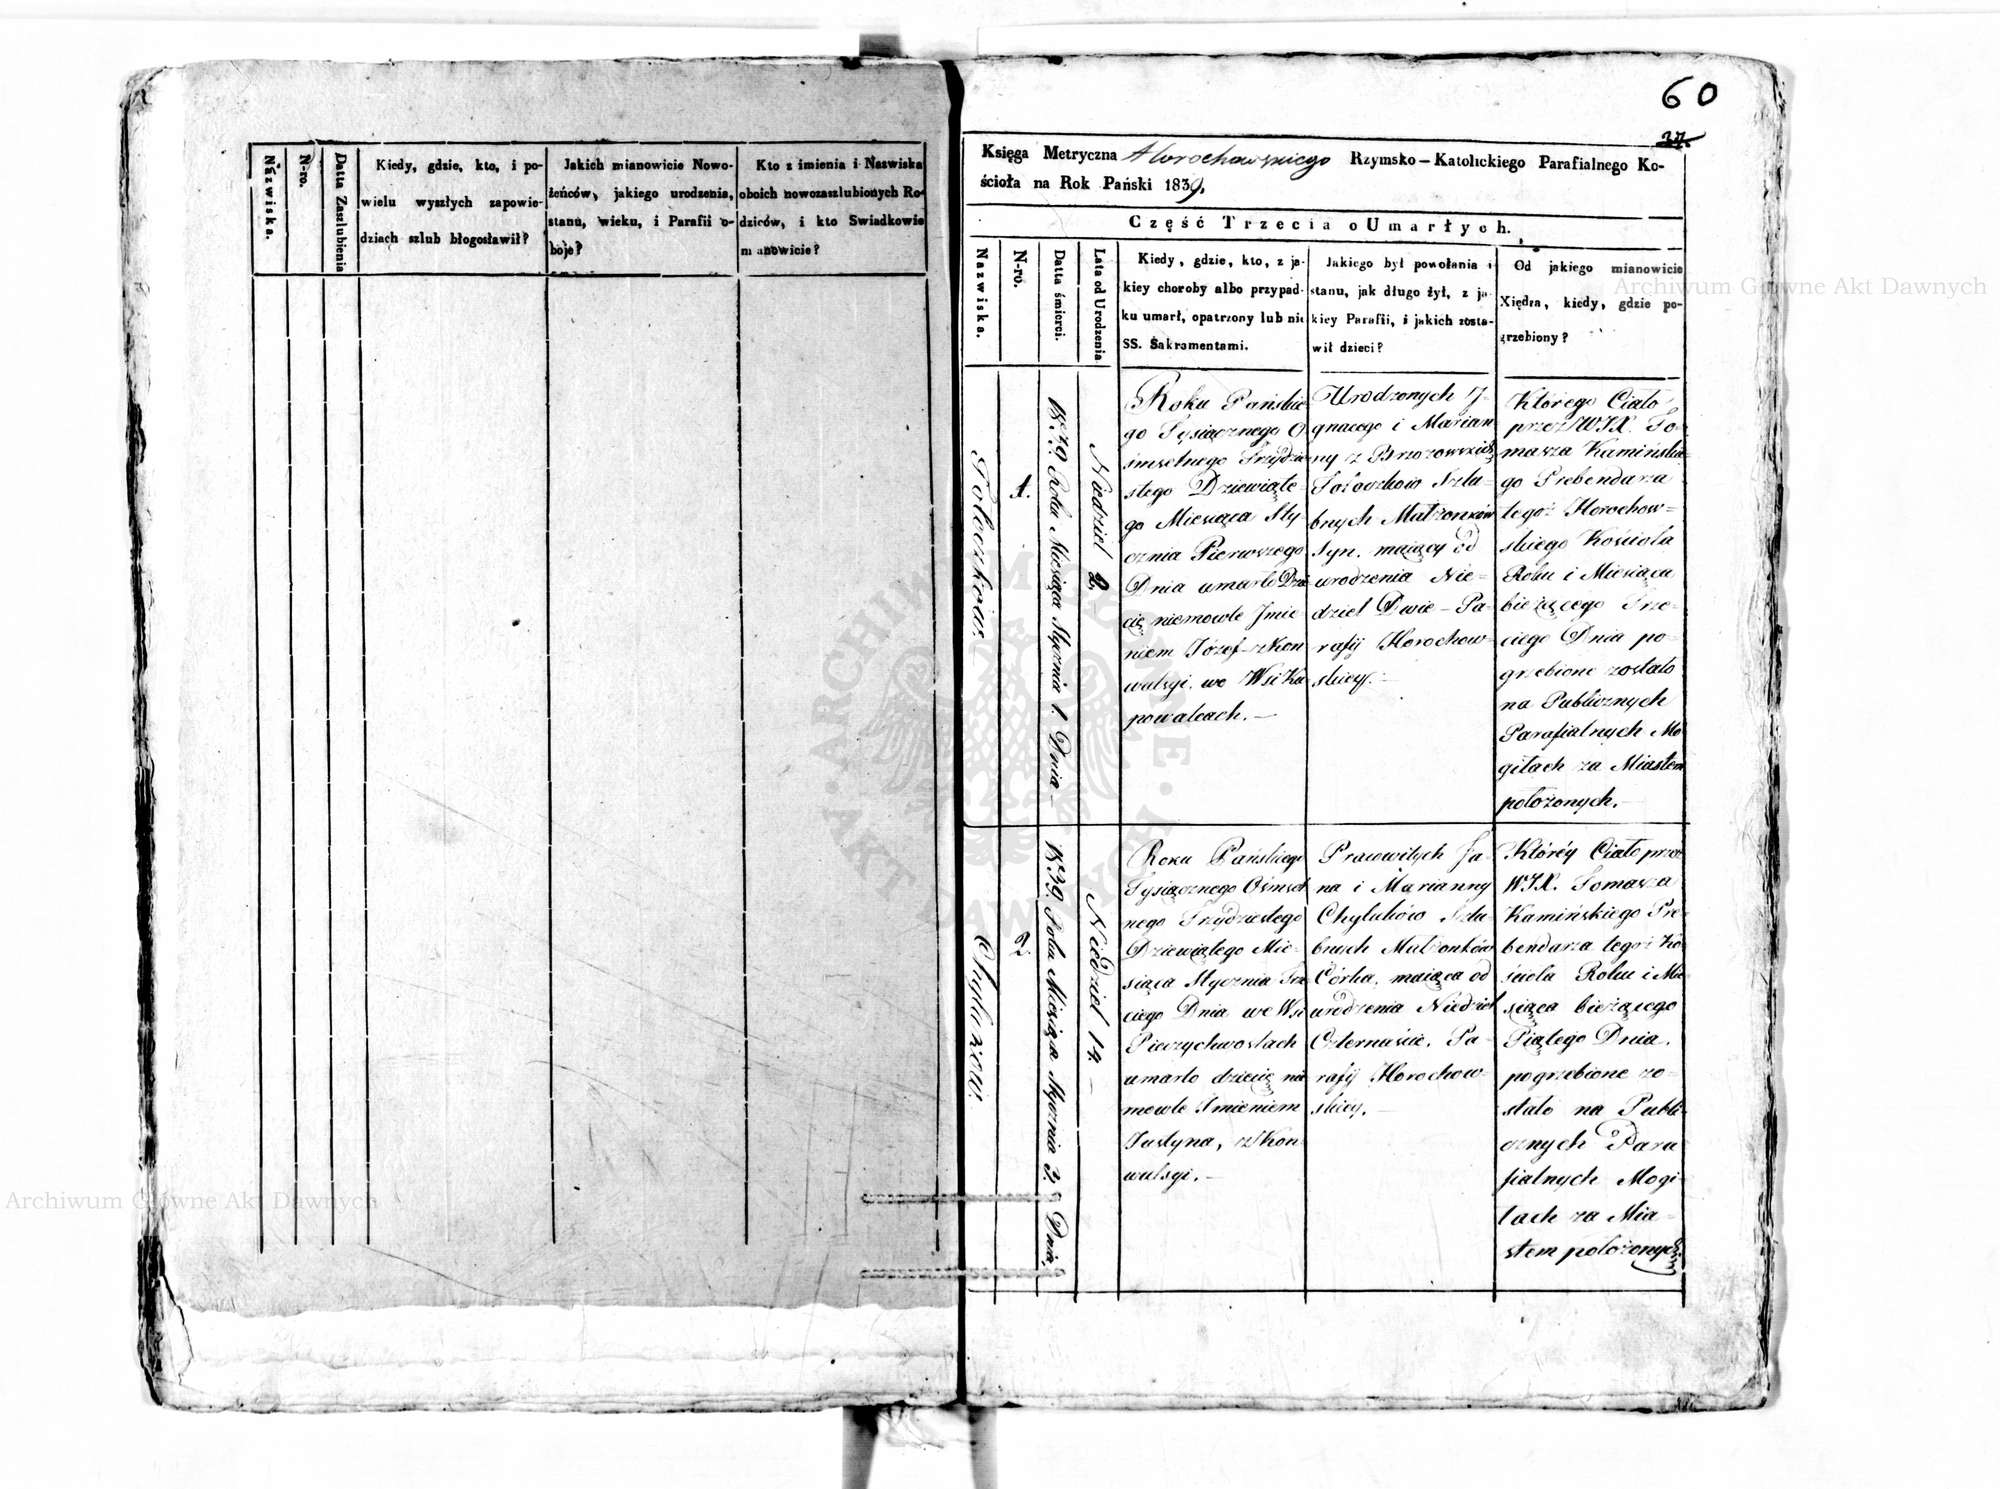 60
27.
Nazwiska.
N-ro.
Datta Zaszlubienia
Kiedy, gdzie, kto, i po-
wielu wyszłych zapowie-
dziach szlub błogosławił?
Jakich mianowicie Nowo-
żeńców, jakiego urodzenia,
stanu, wieku, i Parafii o-
boje?
Kto z imienia i Nazwiska
oboich nowozaszlubionych Ro-
dziców, i kto Swiadkowie
mianowicie?
Księga Metryczna Horochowskiego Rzymsko-Katolickiego Parafialnego Ko-
ścioła na Rok Pański 1839,
Część Trzecia o Umarłych.
Nazwiska.
N-ro.
Datta śmierci.
Lata od Urodzenia
Kiedy, gdzie, kto, z ja-
kiey choroby albo przypad-
ku umarł, opatrzony lub nie
SS. Sakramentami.
Jakiego był powołania i
stanu, jak długo żył, z ja-
kiey Parafii, i jakich zosta-
wił dzieci?
Od jakiego mianowicie
Xiędza, kiedy, gdzie po-
grzebiony?
1.
1839 Roku Miesiąca Stycznia 1. Dnia —
Niedziel 2.
Roku Pańskie
go Tysiącznego O
śmsetnego Trzydzie
stego Dziewiąte-
go Miesiąca Sty
cznia Pierwszego
Dnia umarło Dzie
cię niemowle Jmie
niem Józef z Kon
wulsyi, we Wsi Ku
powalcach. —
Urodzonych J-
gnacego i Marian
ny z Brzozowskich
Szlu-
bnych Małżonków
Syn, maiący od
urodzenia Nie-
dziel Dwie - Pa-
rafij Horochow-
skiey. —
Którego Ciało
przez WJX. To-
masza Kamińskie-
go Prebendarza
tegoż Horochow-
skiego Kościoła
Roku i Miesiąca
bieżącego Trze-
ciego Dnia po-
grzebione zostało
na Publicznych
Parafialnych Mo
giłach za Miastem
położonych. —
2.
1839. Roku Miesiąca Stycznia 3. Dnia.
Niedziel 14. —
Roku Pańskiego
Tysiącznego Ośmset
nego Trzydziestego
Dziewiątego Mie-
siąca Stycznia Trze
ciego Dnia we Wsi
Pieczychwostach
umarło dziecię nie
mowle Jmieniem
Justyna, z Kon
wulsyi. —
Prawowitych Ja-
na i Marianny
Chyluków Szlu-
bnych Małżonków
Córka, maiąca od
urodzenia Niedziel
Czternaście, Pa-
rafij Horochow-
skiey. —
Którey Ciało przez
WJX. Tomasza
Kamińskiego Pre-
bendarza tegoż Ko
ścioła Roku i Mie
siąca bieżącego
Piątego Dnia,
pogrzebione zo-
stało na Publi-
cznych Para
fialnych Mogi
łach za Mia-
stem położonych
Archiwum Główne Akt Dawnych
Archiwum Główne Akt Dawnych
ARCHIWUM GŁÓWNE AKT DAWNYCH